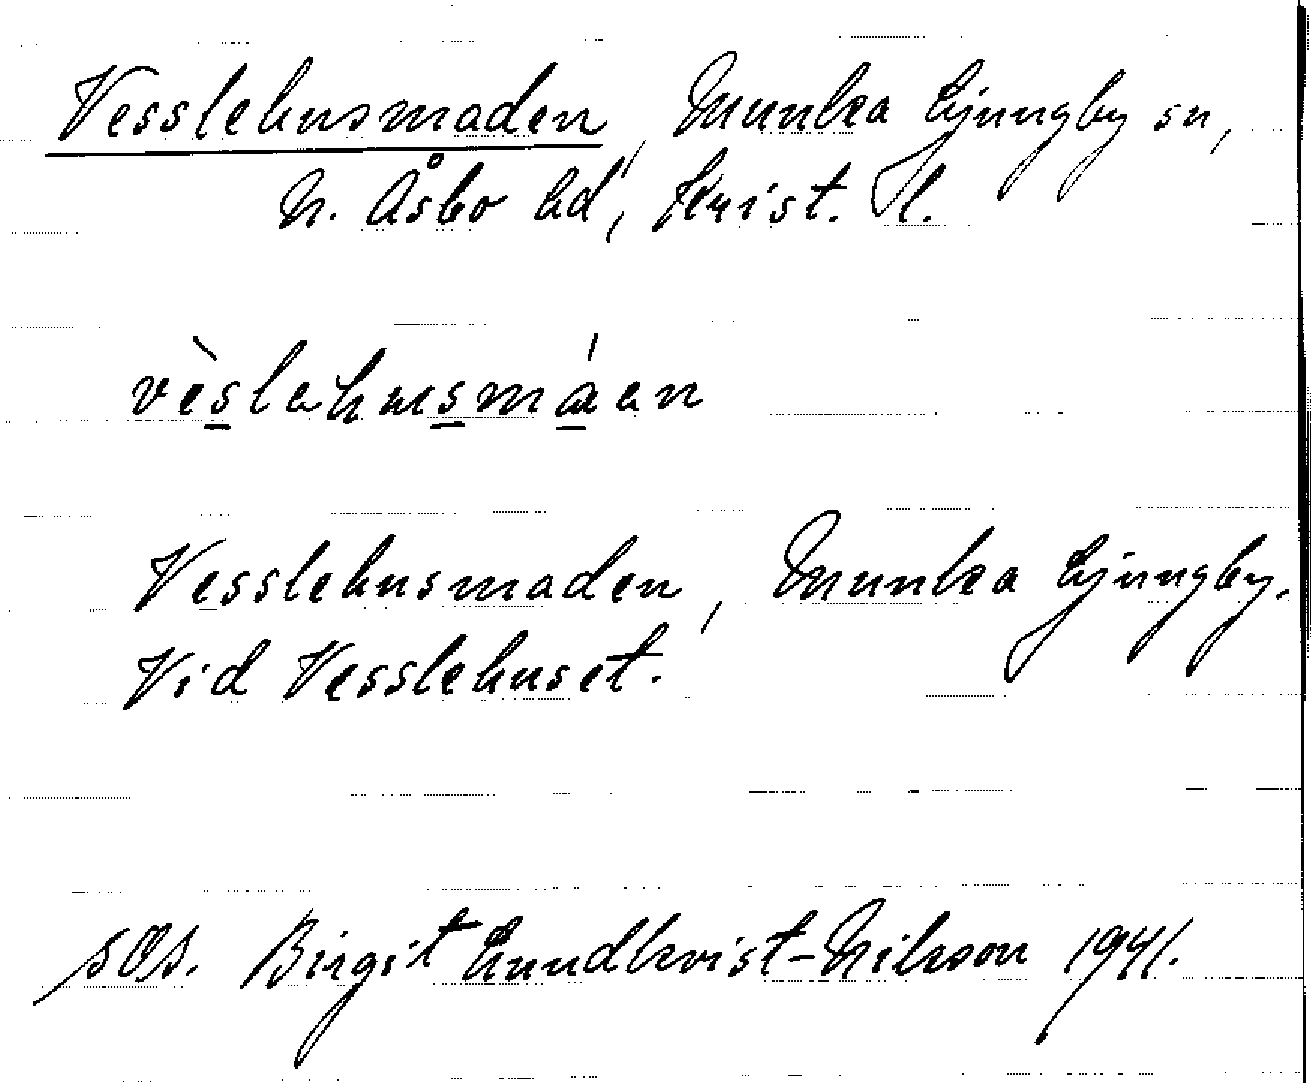 Vesslehusmaden, Munka Ljungby sn,
N. Åsbo hd, Krist. l.
vèslahusmáen
Vesslehusmaden, Munka Ljungby.
Vid Vesslehuset.
SOS. Birgit Lundkvist-Nilsson 1941.